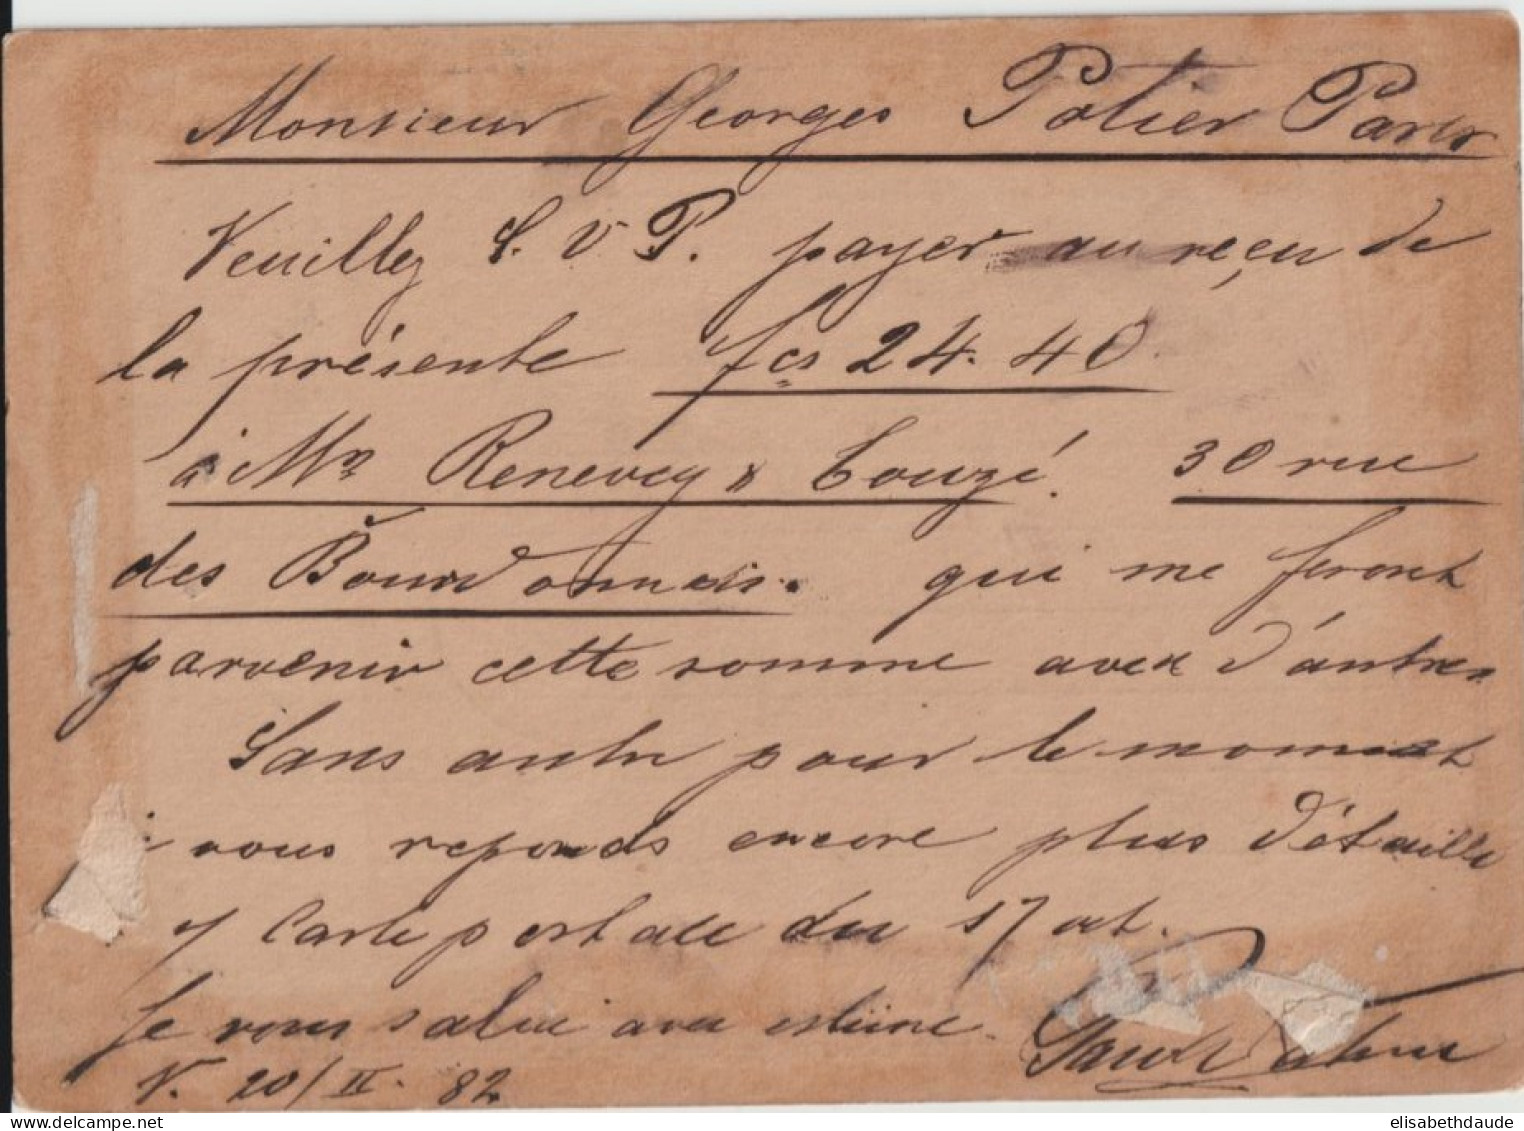 Monsieur Georges Potier Paris
Veuillez S. V P. payer au reçu de
la présente fcs 24.40
à Mrs Renevey & Touzé. 30 rue
des Bourdonnais. qui me feront
parvenir cette somme avec d'autres
Sans autre pour le moment
je vous reponds encore plus détaillé
s/ Carte postale du 17 ct.
Je vous salue avec estime
V. 20/II. 82
elisabethdaude